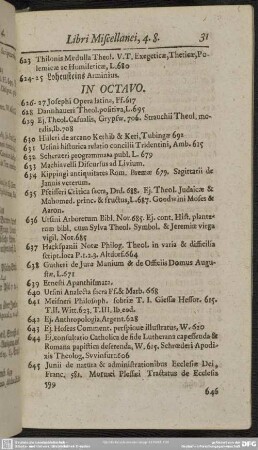 Libri Miscellanei, 4. 8. 31
623 Thilonis Medulla Theol. V.T. Exegetica, Thetica, Po-
lemicae ac Homiletica, L. 680
624-25 Lohensteins Arminius.
IN OCTAVO.
626-27 Josephi Opera latine, Ff. 617
628 Dannhaueri Theol. positiva, L. 695
629 Ej. Theol. Casualis, Grypsw. 706. Strauchii Theol. mo-
ralis, ib. 708
630 Hilleri de arcano Kethib & Keri, Tubing. 692
631 Ursini historica relatio concilii Tridentini, Amb. 615
632 Scherzeri programmata publ. L. 679
633 Machiavelli Discursus ad Livium.
634 Kippingi antiquitates Rom. Bremæ 679. Sagittarii de
Januis veterum.
635 Pfeifferi Critica sacra, Drd. 688. Ej. Theol. Judaicæ &
Mahumed. princ. & fructus, L. 687. Goodwini Moses &
Aaron.
636 Ursini Arboretum Bibl. Nor. 685. Ej. cont. Hist. planta-
rum bibl. cum Sylva Theol. Symbol. & Jeremiæ virga
vigil. Nor. 685
637 Hackspanii Notæ Philog. Theol. in varia & difficilia
script. loca P. 1. 2. 3. Altdorf. 664
638 Gutheri de Jura Manium & de Officiis Domus Augu-
stæ. L. 671
639 Ernesti Apanthismata.
640 Ursini Analecta sacra F. & Marb. 668
641 Meisneri Philosoph. sobriæ T. I. Giessæ Hessor. 615.
T. II. Witt. 623. T. III. Ib. eod.
642 Ej. Anthropologia, Argent. 628
643 Ej. Hoseas Comment. perspicuo illustratus, W. 620
644 Ej. consultatio Catholica de fide Lutherana capessenda &
Romana papistica deserenda, W. 615. Schrœderi Apodi-
xis Theolog. Svvinfurt. 606
645 Junii de natura & administrationibus Ecclesiæ Dei,
Franc. 581. Mornæi Plessæi Tractatus de Ecclesia
599
646